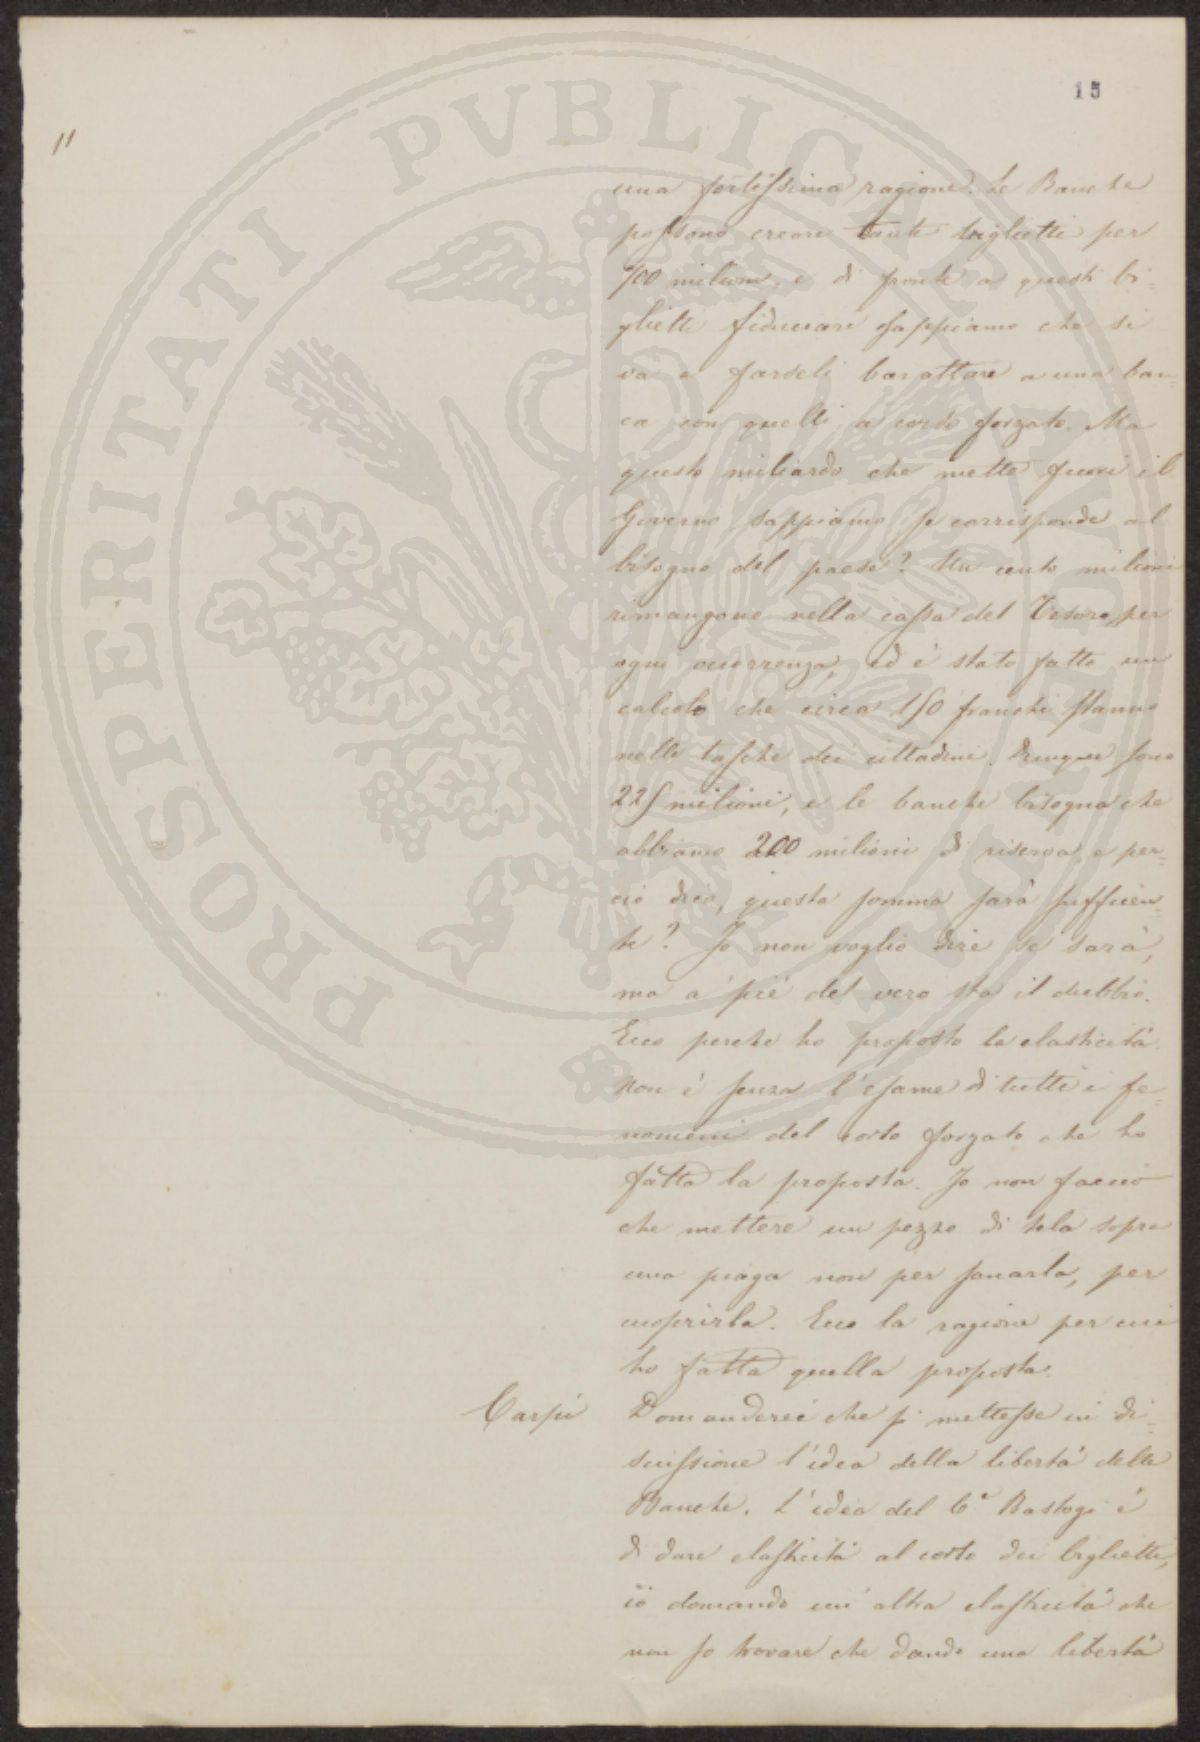 15
11
PROSPERITATI PVBLICAE AVGENDAE
una fortissima ragione. Le Banche
possono creare tanti biglietti per
700 milioni, e di fronte a questi bi-
glietti fiduciari sappiamo che si
va a farseli barattare a una ban-
ca con quelli a corso forzato. Ma
questo miliardo che mette fuori il
Governo sappiamo se corrisponde al
bisogno del paese? Un cento milioni
rimangono nella cassa del Tesoro per
ogni occorrenza, ed è stato fatto un
calcolo che circa 150 franchi stanno
nelle tasche dei cittadini. Dunque sono
225 milioni, e le banche bisogna che
abbiamo 200 milioni di riserva, e per-
ciò dico, questa somma sarà sufficien-
te? Io non voglio dire se sarà,
ma a piè del vero sta il dubbio.
Ecco perchè ho proposto la elasticità.
Non è senza l'esame di tutti i fe-
nomeni del corso forzato che ho
fatta la proposta. Io non faccio
che mettere un pezzo di tela sopra
una piaga non per sanarla, per
cuoprirla. Ecco la ragione per cui
ho fatta quella proposta.
Carpi Domanderei che si mettesse in di-
scussione l'idea della libertà delle
Banche. L'idea del C.e Bastogi è
di dare elasticità al corso dei biglietti,
io domando un'altra elasticità che
non so trovare che dando una libertà